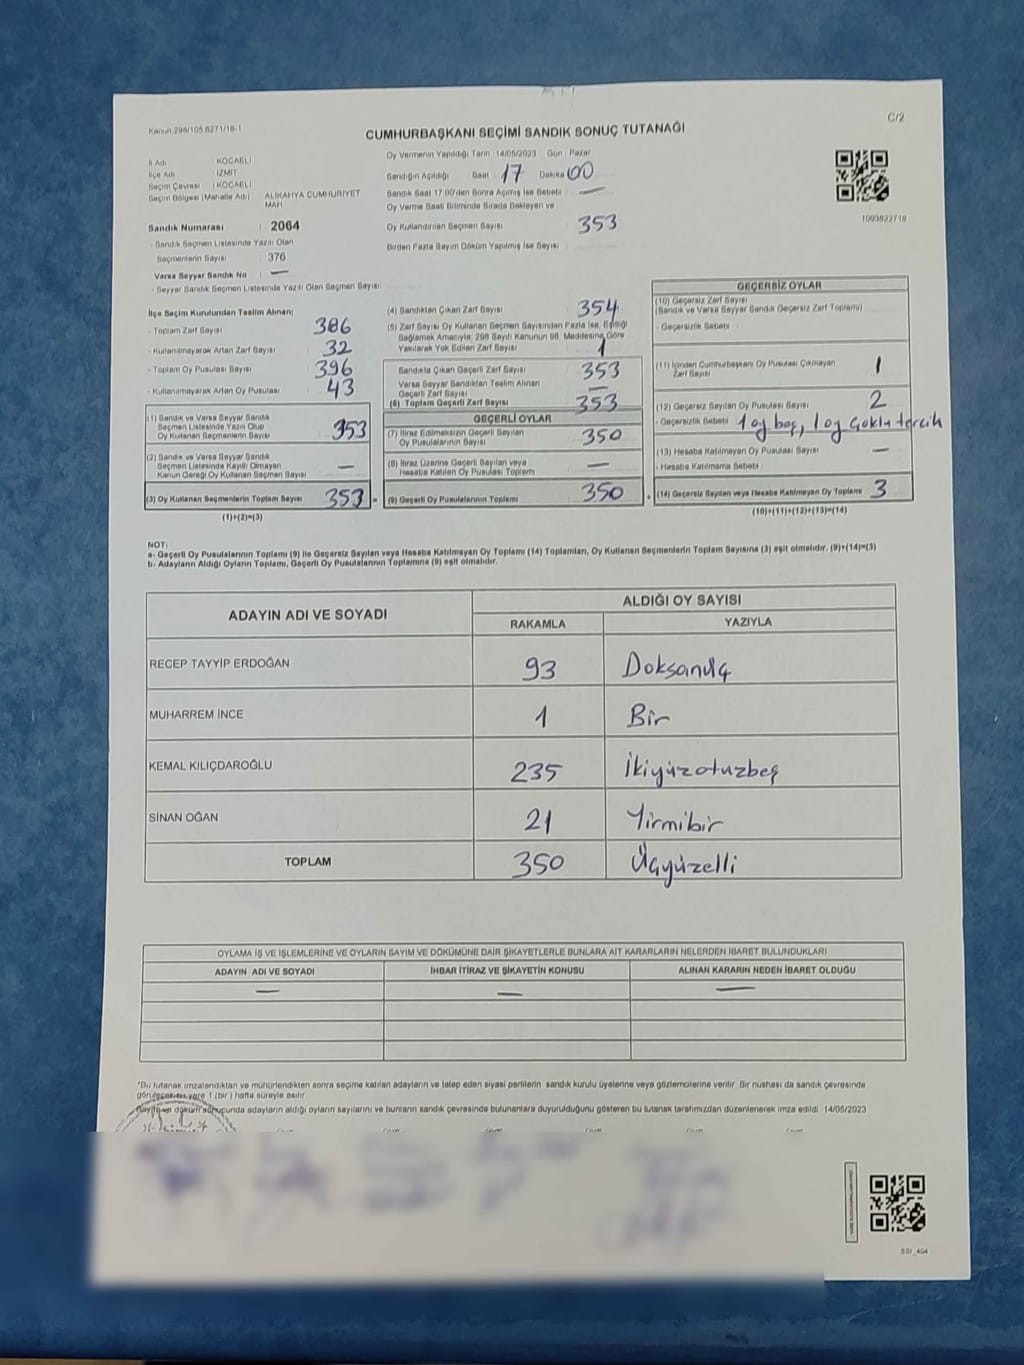 Kanun 298/105,6271/18-1
C/2
CUMHURBAŞKANI SEÇİMİ SANDIK SONUÇ TUTANAĞI
İl Adı : KOCAELİ
İlçe Adı : İZMİT
Seçim Çevresi : KOCAELİ
Seçim Bölgesi (Mahalle Adı) : ALİKAHYA CUMHURİYET MAH.
Sandık Numarası : 2064
- Sandık Seçmen Listesinde Yazılı Olan
Seçmenlerin Sayısı : 376
Varsa Seyyar Sandık No : —
- Seyyar Sandık Seçmen Listesinde Yazılı Olan Seçmen Sayısı:
Oy Vermenin Yapıldığı Tarih : 14/05/2023 Gün : Pazar
Sandığın Açıldığı Saat : 17 Dakika 00
Sandık Saat 17:00'den Sonra Açılmış İse Sebebi : —
Oy Verme Saati Bitiminde Sırada Bekleyen ve
Oy Kullandırılan Seçmen Sayısı 353
Birden Fazla Sayım Döküm Yapılmış İse Sayısı :
1093822718
İlçe Seçim Kurulundan Teslim Alınan;
- Toplam Zarf Sayısı 386
- Kullanılmayarak Artan Zarf Sayısı 32
- Toplam Oy Pusulası Sayısı 396
- Kullanılmayarak Artan Oy Pusulası 43
(1) Sandık ve Varsa Seyyar Sandık
Seçmen Listesinde Yazılı Olup
Oy Kullanan Seçmenlerin Sayısı 353
(2) Sandık ve Varsa Seyyar Sandık
Seçmen Listesinde Kayıtlı Olmayan
Kanun Gereği Oy Kullanan Seçmen Sayısı —
(3) Oy Kullanan Seçmenlerin Toplam Sayısı 353 =
(1)+(2)=(3)
(4) Sandıktan Çıkan Zarf Sayısı 354
(5) Zarf Sayısı Oy Kullanan Seçmen Sayısından Fazla İse, Eşitliği
Sağlamak Amacıyla; 298 Sayılı Kanunun 98. Maddesine Göre
Yakılarak Yok Edilen Zarf Sayısı 1
Sandıkta Çıkan Geçerli Zarf Sayısı 353
Varsa Seyyar Sandıktan Teslim Alınan
Geçerli Zarf Sayısı —
(6) Toplam Geçerli Zarf Sayısı 353
GEÇERLİ OYLAR
(7) İtiraz Edilmeksizin Geçerli Sayılan
Oy Pusulalarının Sayısı 350
(8) İtiraz Üzerine Geçerli Sayılan veya
Hesaba Katılan Oy Pusulası Toplamı —
(9) Geçerli Oy Pusulalarının Toplamı 350 +
GEÇERSİZ OYLAR
(10) Geçersiz Zarf Sayısı
(Sandık ve Varsa Seyyar Sandık Geçersiz Zarf Toplamı)
- Geçersizlik Sebebi :
(11) İçinden Cumhurbaşkanı Oy Pusulası Çıkmayan
Zarf Sayısı 1
(12) Geçersiz Sayılan Oy Pusulası Sayısı 2
- Geçersizlik Sebebi : 1 oy boş, 1 oy çoklu tercih
(13) Hesaba Katılmayan Oy Pusulası Sayısı —
- Hesaba Katılmama Sebebi :
(14) Geçersiz Sayılan veya Hesaba Katılmayan Oy Toplamı 3
(10)+(11)+(12)+(13)=(14)
NOT:
a- Geçerli Oy Pusulalarının Toplamı (9) ile Geçersiz Sayılan veya Hesaba Katılmayan Oy Toplamı (14) Toplamları, Oy Kullanan Seçmenlerin Toplam Sayısına (3) eşit olmalıdır. (9)+(14)=(3)
b- Adayların Aldığı Oyların Toplamı, Geçerli Oy Pusulalarının Toplamına (9) eşit olmalıdır.
ADAYIN ADI VE SOYADI
ALDIĞI OY SAYISI
RAKAMLA YAZIYLA
RECEP TAYYİP ERDOĞAN 93 Doksanüç
MUHARREM İNCE 1 Bir
KEMAL KILIÇDAROĞLU 235 İkiyüzotuzbeş
SİNAN OĞAN 21 Yirmibir
TOPLAM 350 Üçyüzelli
OYLAMA İŞ VE İŞLEMLERİNE VE OYLARIN SAYIM VE DÖKÜMÜNE DAİR ŞİKAYETLERLE BUNLARA AİT KARARLARIN NELERDEN İBARET BULUNDUKLARI
ADAYIN ADI VE SOYADI İHBAR İTİRAZ VE ŞİKAYETİN KONUSU ALINAN KARARIN NEDEN İBARET OLDUĞU
— — —
*Bu tutanak imzalandıktan ve mühürlendikten sonra seçime katılan adayların ve talep eden siyasi partilerin sandık kurulu üyelerine veya gözlemcilerine verilir. Bir nüshası da sandık çevresinde
görülecek bir yere 1 (bir) hafta süreyle asılır.
döküm sonucunda adayların aldığı oyların sayılarını ve bunların sandık çevresinde bulunanlara duyurulduğunu gösteren bu tutanak tarafımızdan düzenlenerek imza edildi. 14/05/2023